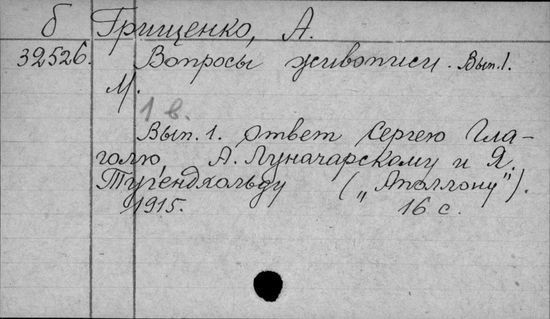 б Грищенко, А.
32526. Вопросы живописи. Вып. 1.
М.
1 в.
Вып. 1. Ответ Сергею Гла-
голю, А. Луначарскому и Я.
Тугендхольду („Аполлону").
1915. 16 с.